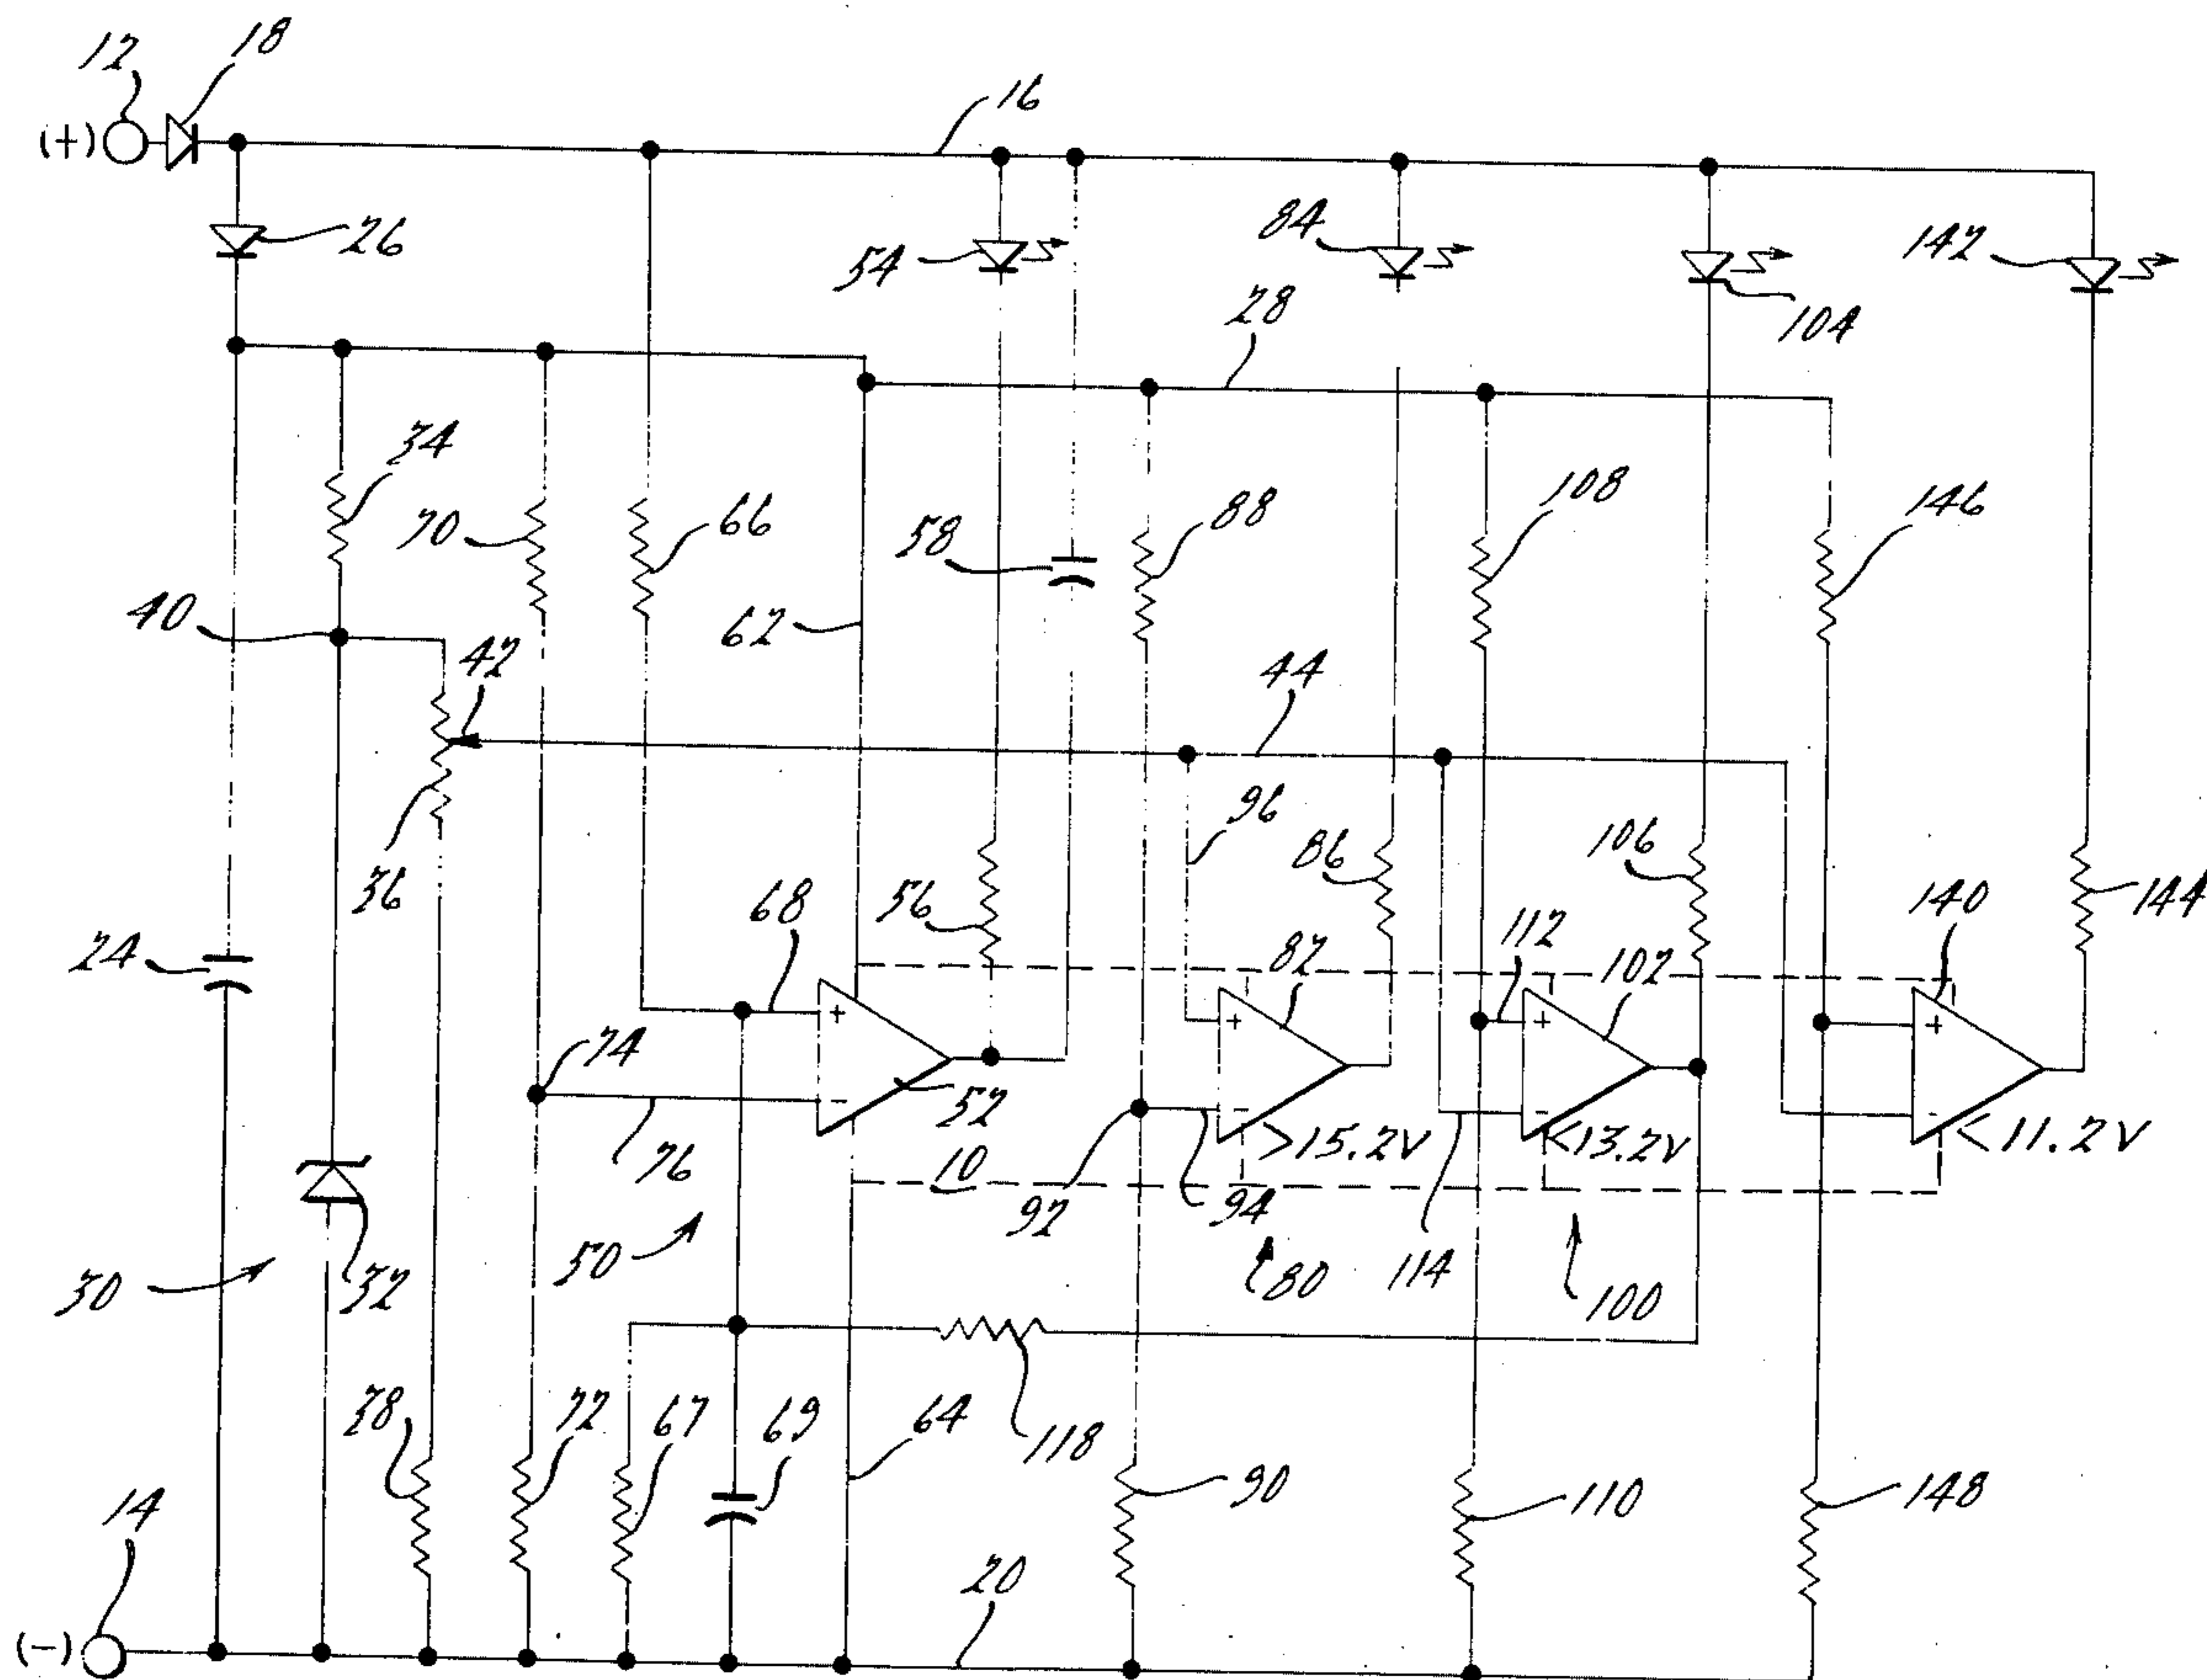 12
18
(+)
16
26
54
84
142
104
28
34
70
66
58
88
108
146
40
62
42
44
96
36
68
56
86
106
140
144
24
112
82
102
74
52
76
10
>15.2V
<13.2V
<11.2V
92
94
114
30
32
50
80
100
38
72
67
69
64
118
90
110
148
14
20
(-)
+
-
+
-
+
-
+
-